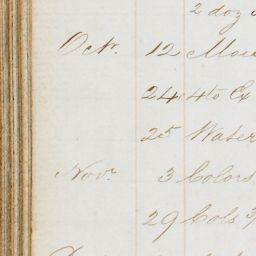 2 doz
Octr. 12
24 4to Ex
25 Water
Novr. 3 Colors
29 Cols 3/